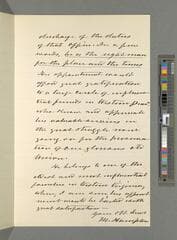 discharge of the duties
of that office. In a few
words, he is the right man
for the place and the times.
His appointment would
afford great gratification
to a large circle of influential
friends in Western
who know and appreciate
his valuable services in
the great struggle
for the preservation
of our glorious old
Union.
He belongs to one of the
oldest and most influential
families in Western Virginia,
where, I am sure, his appoint
ment would be hailed with
great satisfaction.
Your Obt. Servt